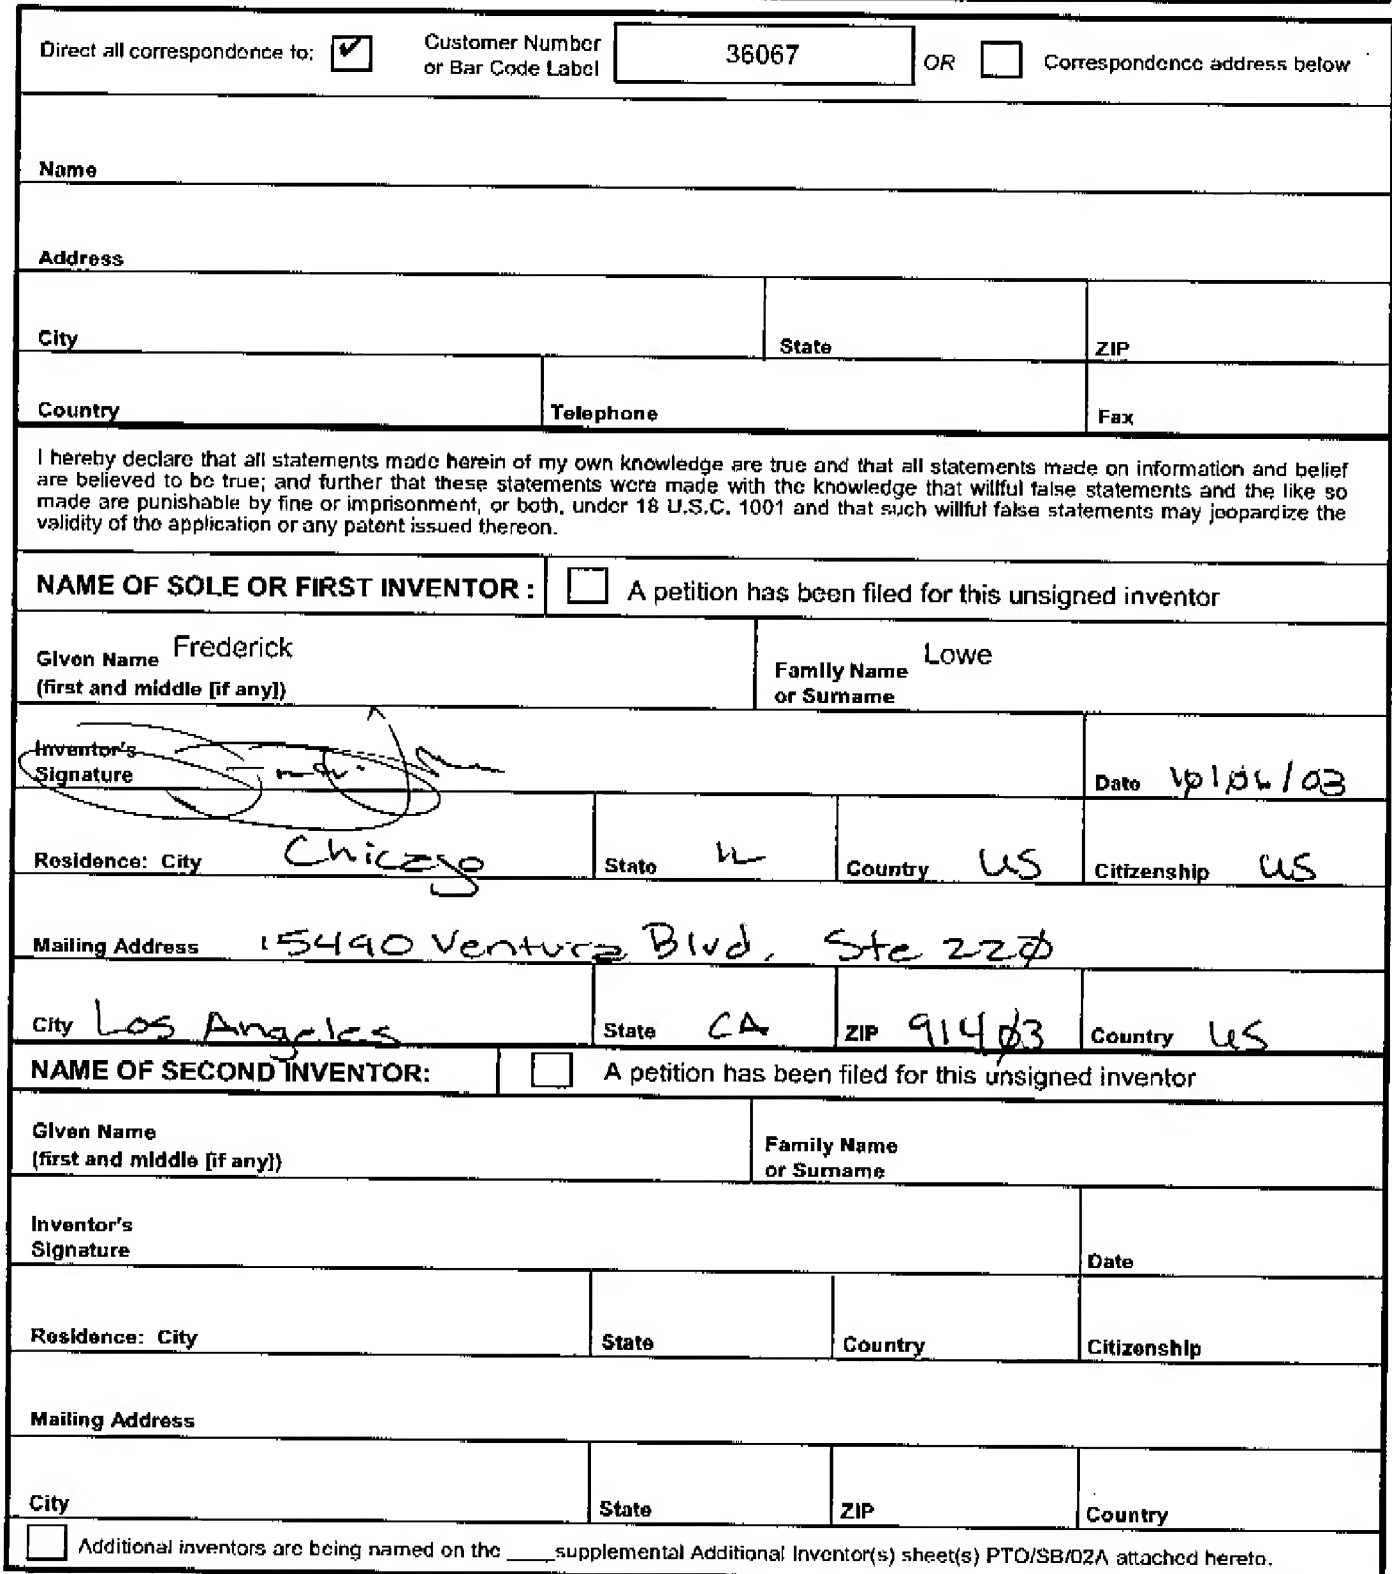 Direct all correspondence to: ✔ Customer Number or Bar Code Label 36067 OR Correspondence address below
Name
Address
City State ZIP
Country Telephone Fax
I hereby declare that all statements made herein of my own knowledge are true and that all statements made on information and belief
are believed to be true; and further that these statements were made with the knowledge that willful false statements and the like so
made are punishable by fine or imprisonment, or both, under 18 U.S.C. 1001 and that such willful false statements may jeopardize the
validity of the application or any patent issued thereon.
NAME OF SOLE OR FIRST INVENTOR : A petition has been filed for this unsigned inventor
Given Name Frederick Family Name Lowe
(first and middle [if any]) or Surname
Inventor's
Signature Date 10/06/03
Residence: City Chicago State IL Country US Citizenship US
Mailing Address 15490 Ventura Blvd, Ste 220
City Los Angeles State CA ZIP 91403 Country US
NAME OF SECOND INVENTOR: A petition has been filed for this unsigned inventor
Given Name Family Name
(first and middle [if any]) or Surname
Inventor's
Signature Date
Residence: City State Country Citizenship
Mailing Address
City State ZIP Country
Additional inventors are being named on the ____supplemental Additional Inventor(s) sheet(s) PTO/SB/02A attached hereto.